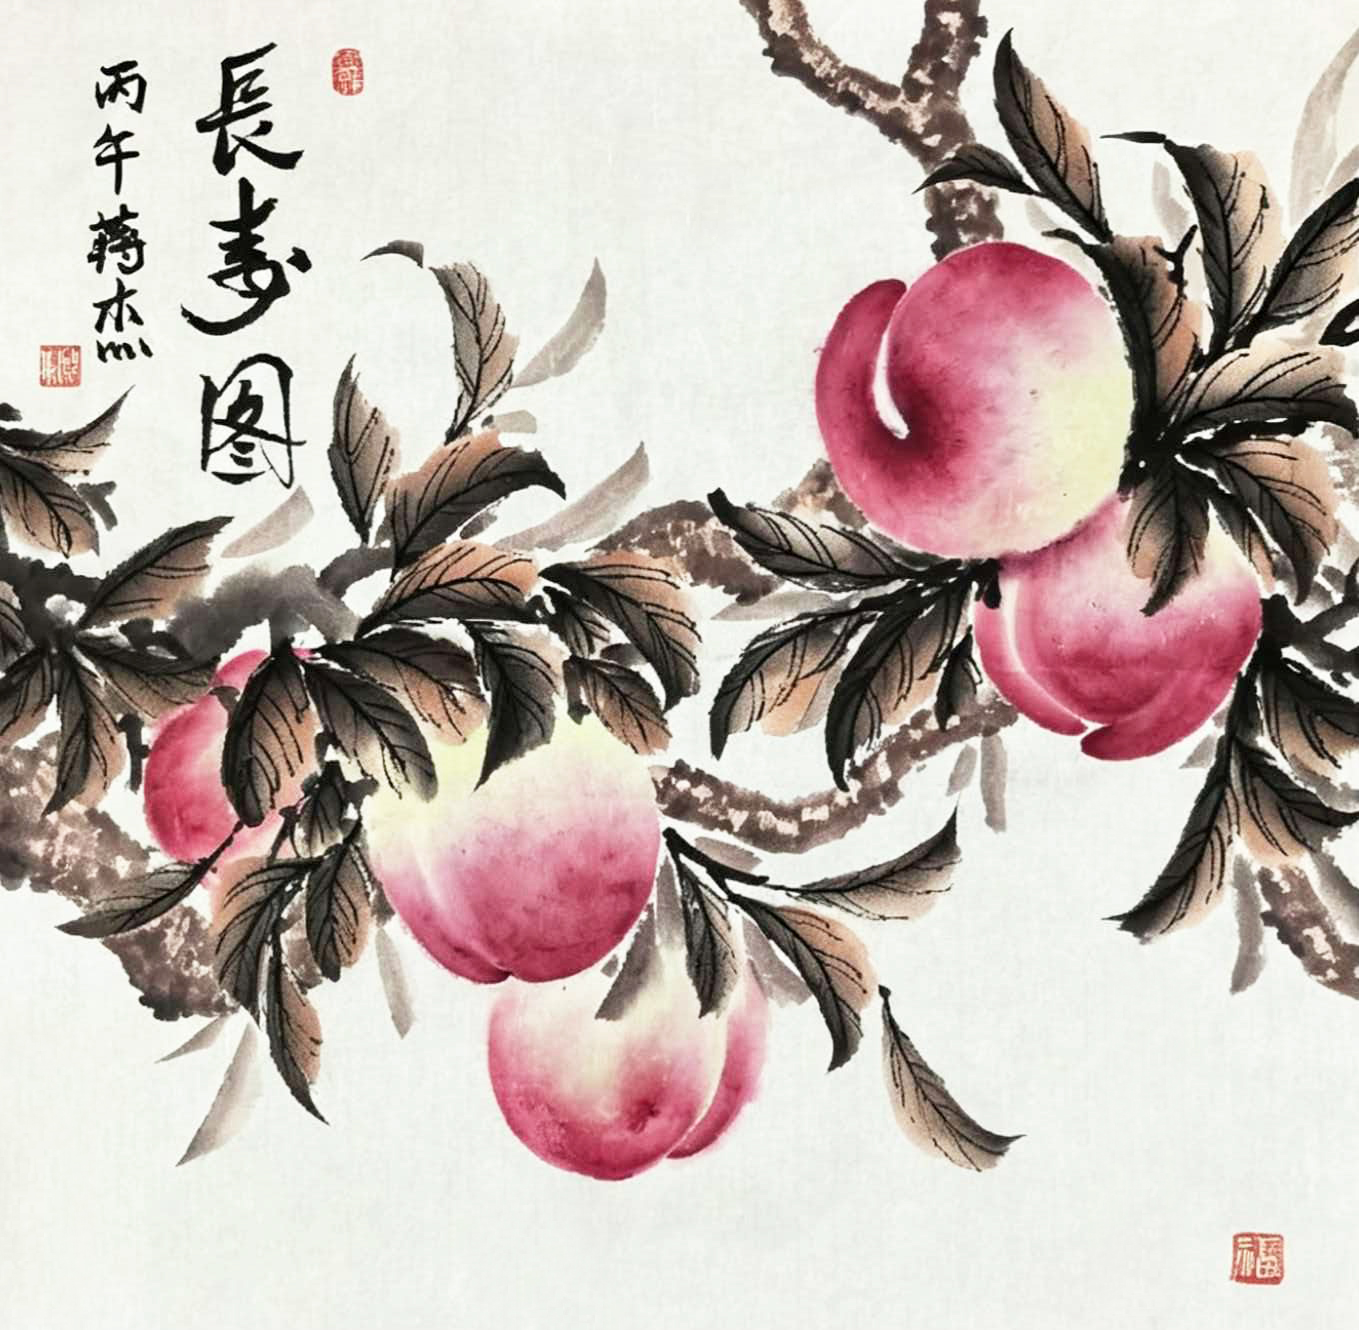 長寿图
丙午蒋木
福